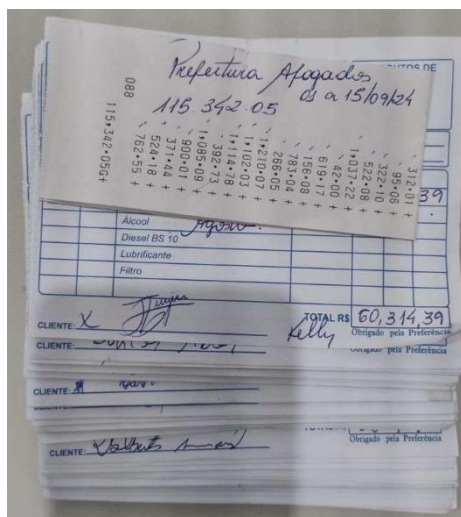 Prefeitura Afogados
01 a 15/09/24
115.342.05
312•01 +
95•06 +
322•10 +
522•08 +
1•037•22 +
42•00 +
619•17 +
156•08 +
783•04 +
266•05 +
1•210•07 +
1•202•03 +
1•114•78 +
392•73 +
1•085•09 +
900•01 +
371•44 +
524•18 +
762•55 +
088
115•342•05G+
39
Álcool
Diesel BS 10
Lubrificante
Filtro
TOTAL R$ 60,314,39
CLIENTE: X
Kelly
Obrigado pela Preferência
CLIENTE:
Obrigado pela Preferência
CLIENTE:
CLIENTE:
Obrigado pela Preferência